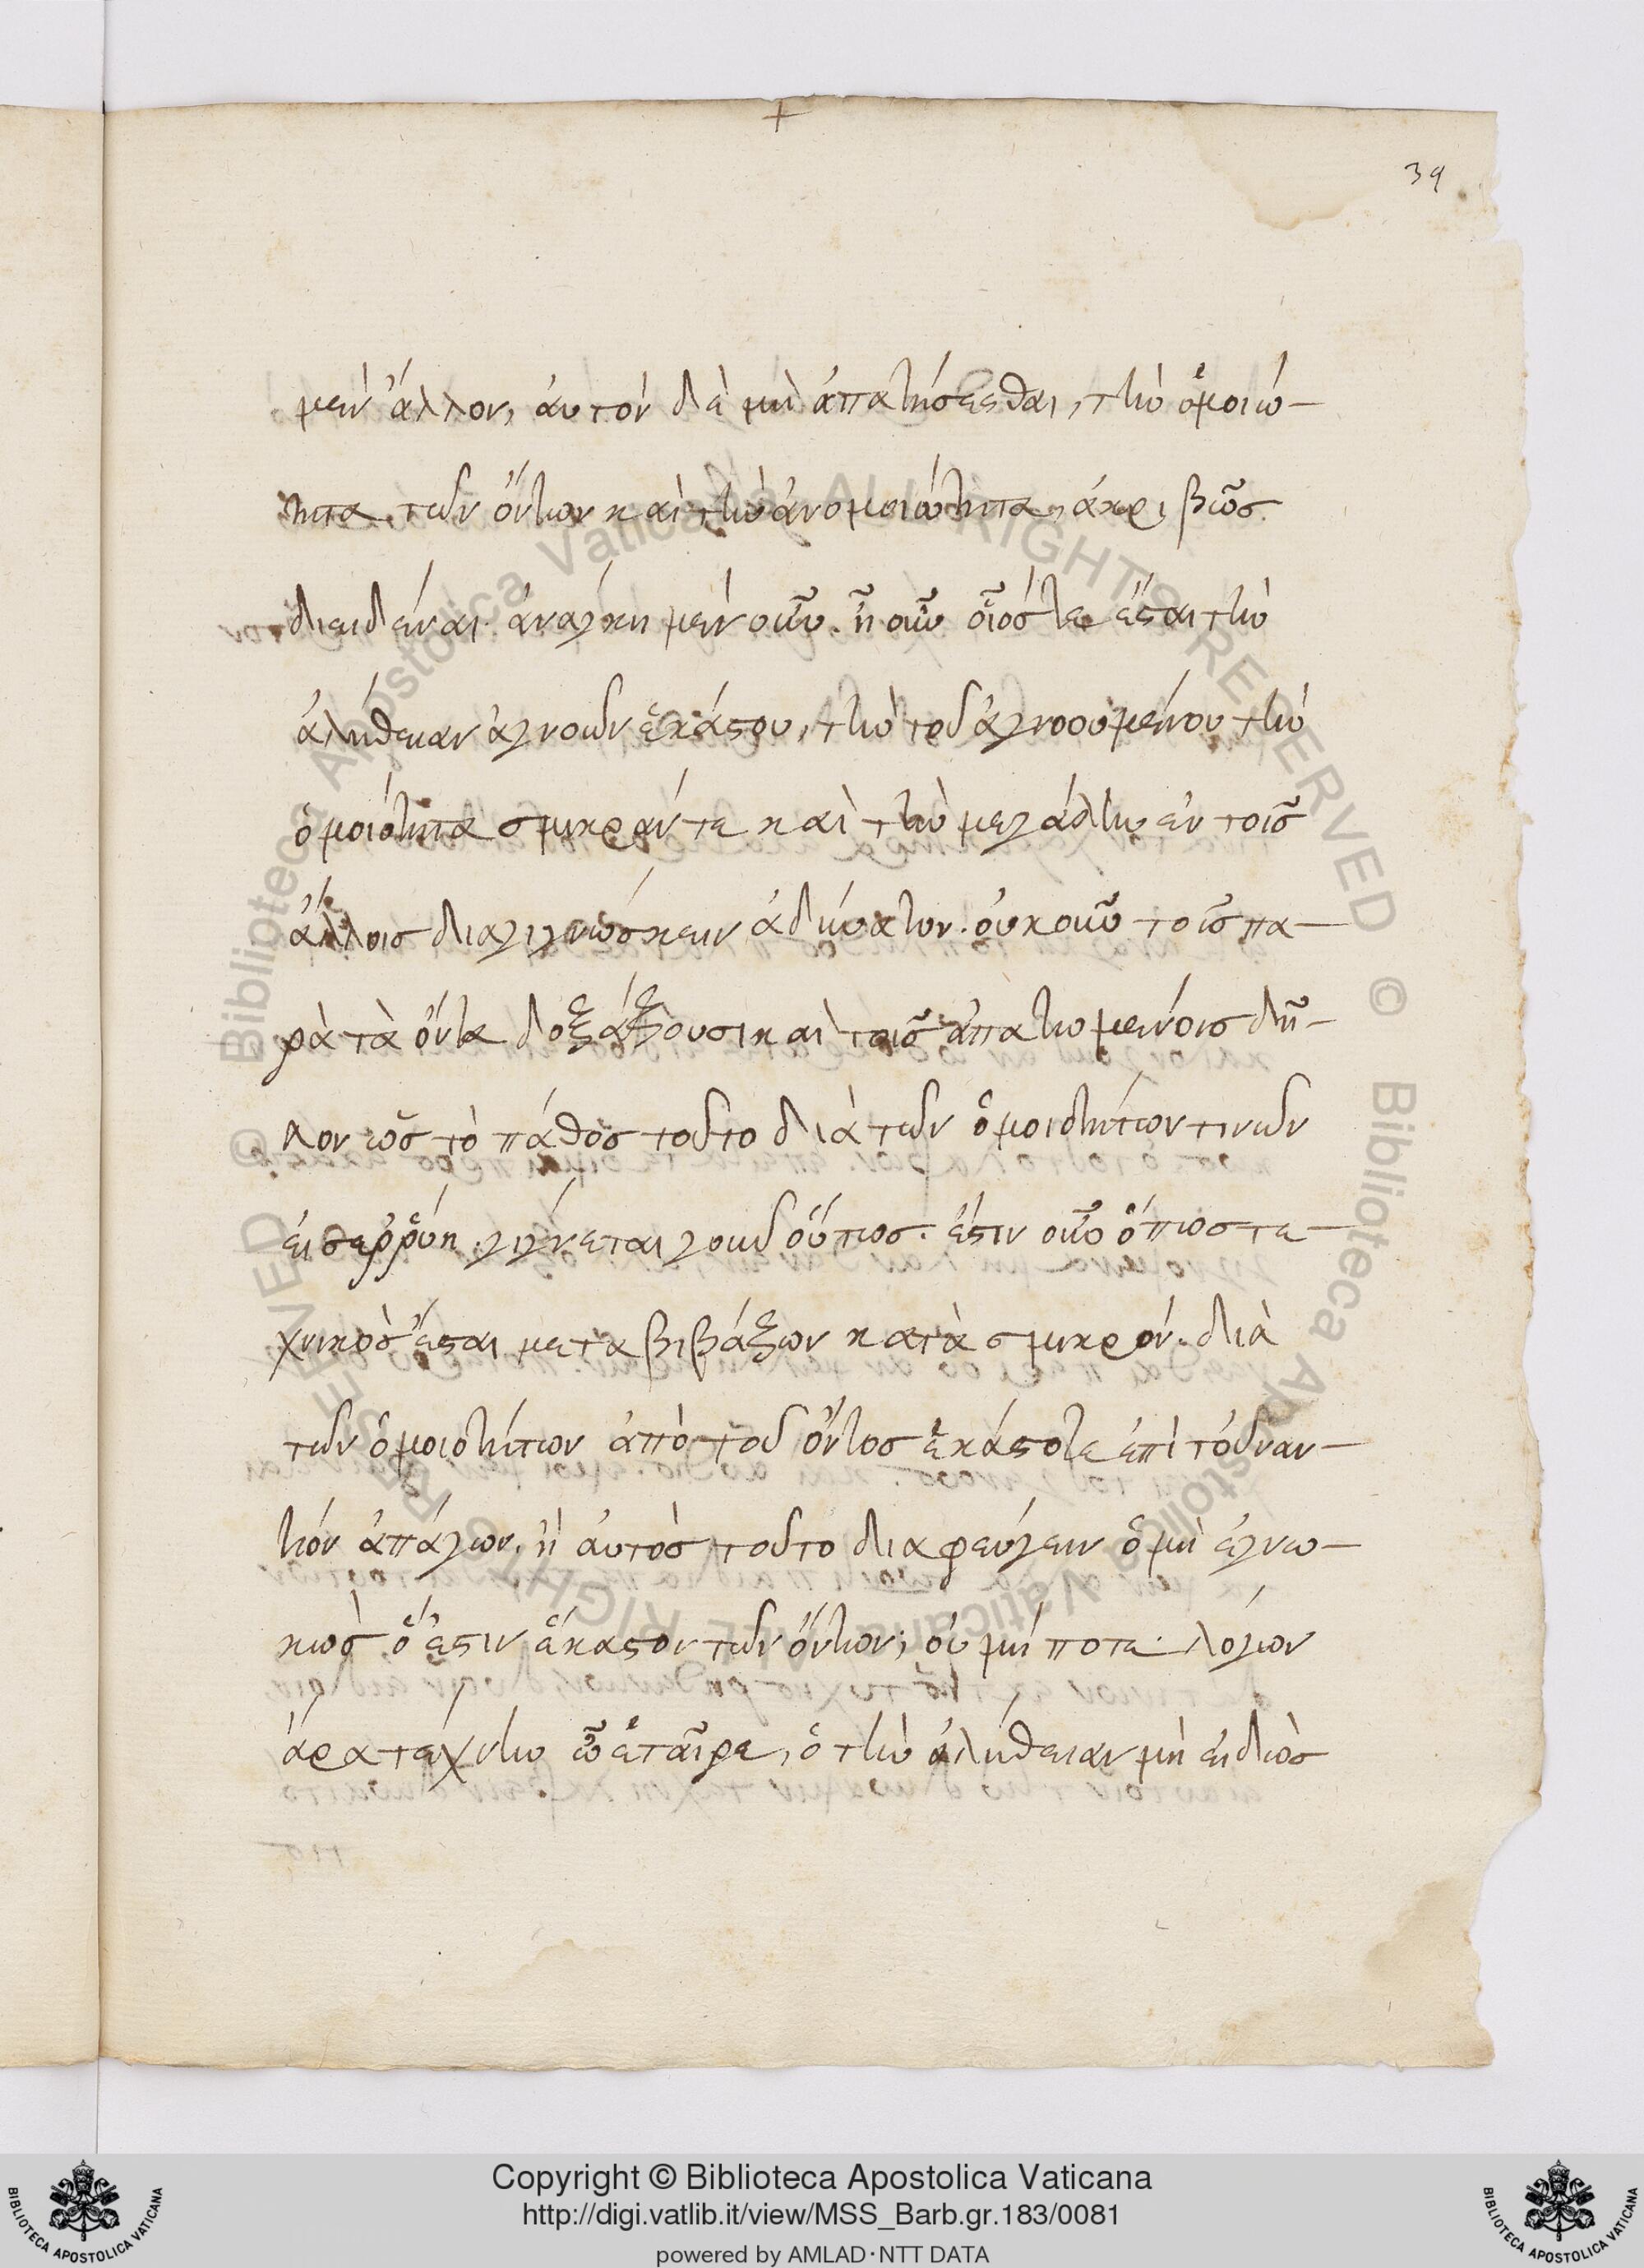 +
39
μὲν ἄλλον, αὐτὸν δὲ μὴ ἀπατήσεσθαι, τὴν ὁμοιώ-
τητα τῶν ὄντων καὶ τὴν ἀνομοιώτητα, ἀκριβῶς
διειδέναι. ἀνάγκη μὲν οὖν. ἦ οὖν οἷός τε ἔσται τὴν
ἀλήθειαν ἀγνοῶν ἑκάστου, τὴν τοῦ ἀγνοουμένου τὴν
ὁμοιότητα σμικράν τε καὶ τὴν μεγάλην ἐν τοῖς
ἄλλοις διαγιγνώσκειν ἀδύνατον. οὐκοῦν τοῖς πα-
ρὰ τὰ ὄντα δοξάζουσι καὶ τοῖς ἀπατωμένοις δῆ-
λον ὡς τὸ πάθος τοῦτο διὰ τῶν ὁμοιοτήτων τινῶν
εἰσερρύη. γίγνεται γοῦν οὕτως. ἔστιν οὖν ὅπως τε-
χνικὸς ἔσται μεταβιβάζων κατὰ σμικρόν. διὰ
τῶν ὁμοιοτήτων ἀπὸ τοῦ ὄντος ἑκάστοτε ἐπὶ τοὐναν-
τίον ἀπάγων. ἢ αὐτὸς τοῦτο διαφεύγειν ὁ μὴ ἐγνω-
κὼς ὃ ἔστιν ἕκαστον τῶν ὄντων; οὐ μή ποτε. λόγων
ἄρα τέχνην ὦ ἑταῖρε, ὁ τὴν ἀλήθειαν μὴ εἰδὼς
Copyright © Biblioteca Apostolica Vaticana
http://digi.vatlib.it/view/MSS_Barb.gr.183/0081
powered by AMLAD·NTT DATA